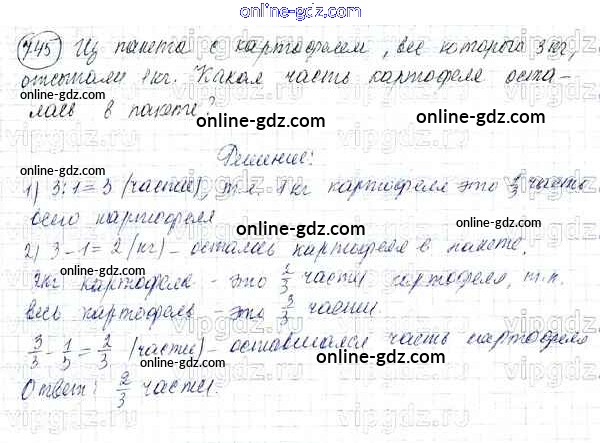 online-gdz.com
7.45 Из пакета с картофелем, вес которого 3 кг,
отсыпали 1 кг. Какая часть картофеля оста-
лась в пакете?
online-gdz.com online-gdz.com
Решение:
online-gdz.com online-gdz.com
1) 3:1=3 (части), т.е. 1 кг картофеля это 1/3 часть
всего картофеля
online-gdz.com
2) 3-1=2 (кг) - осталось картофеля в пакете.
online-gdz.com
2кг картофеля - это 2/3 части картофеля, т.к.
весь картофель - это 3/3 части.
online-gdz.com online-gdz.com
3/3 - 1/3 = 2/3 (части) - оставшаяся часть картофеля
online-gdz.com
Ответ: 2/3 части.
online-gdz.com online-gdz.com